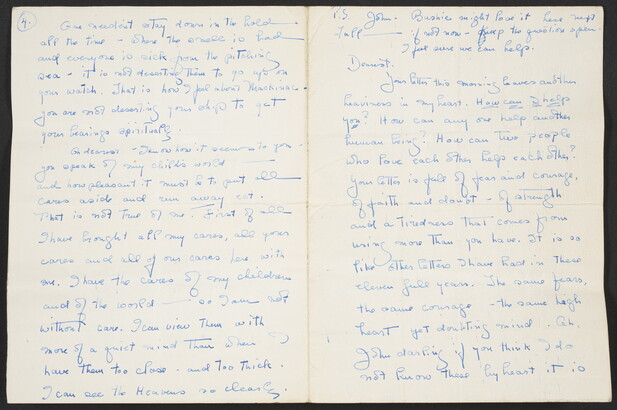 4.
One needn't stay down in the hold
all the time - where the smell is bad
and everyone is sick from the pitching
sea - it is not deserting them to go up on
your watch. That is how I feel about Mackinac -
you are not deserting your ship to get
your bearings spiritually.
Oh dearest - I know how it seems to you -
you speak of my child's world
and how pleasant it must be to put all
cares aside and run away etc.
That is not true of me. First of all
I have brought all my cares, all your
cares and all of our cares here with
me. I have the cares of my children
and of the world - so I am not
without care. I can view them with
more of a quiet mind than when I
have them too close - and too thick.
I can see the Heavens so clearly.
P.S. John. Bushie might love it here next
fall - if not now - keep the question open.
I feel sure we can help.
Dearest.
Your letter this morning leaves another
heaviness in my heart. How can I help
you? How can any one help another
human being? How can two people
who love each other help each other?
Your letter is full of fear and courage,
of faith and doubt - of strength
and a tiredness that comes from
using more than you have. It is so
like other letters I have had in these
eleven full years. The same fears,
the same courage - the same high
heart yet doubting mind. Oh,
John darling if you think I do
not know these by heart it is